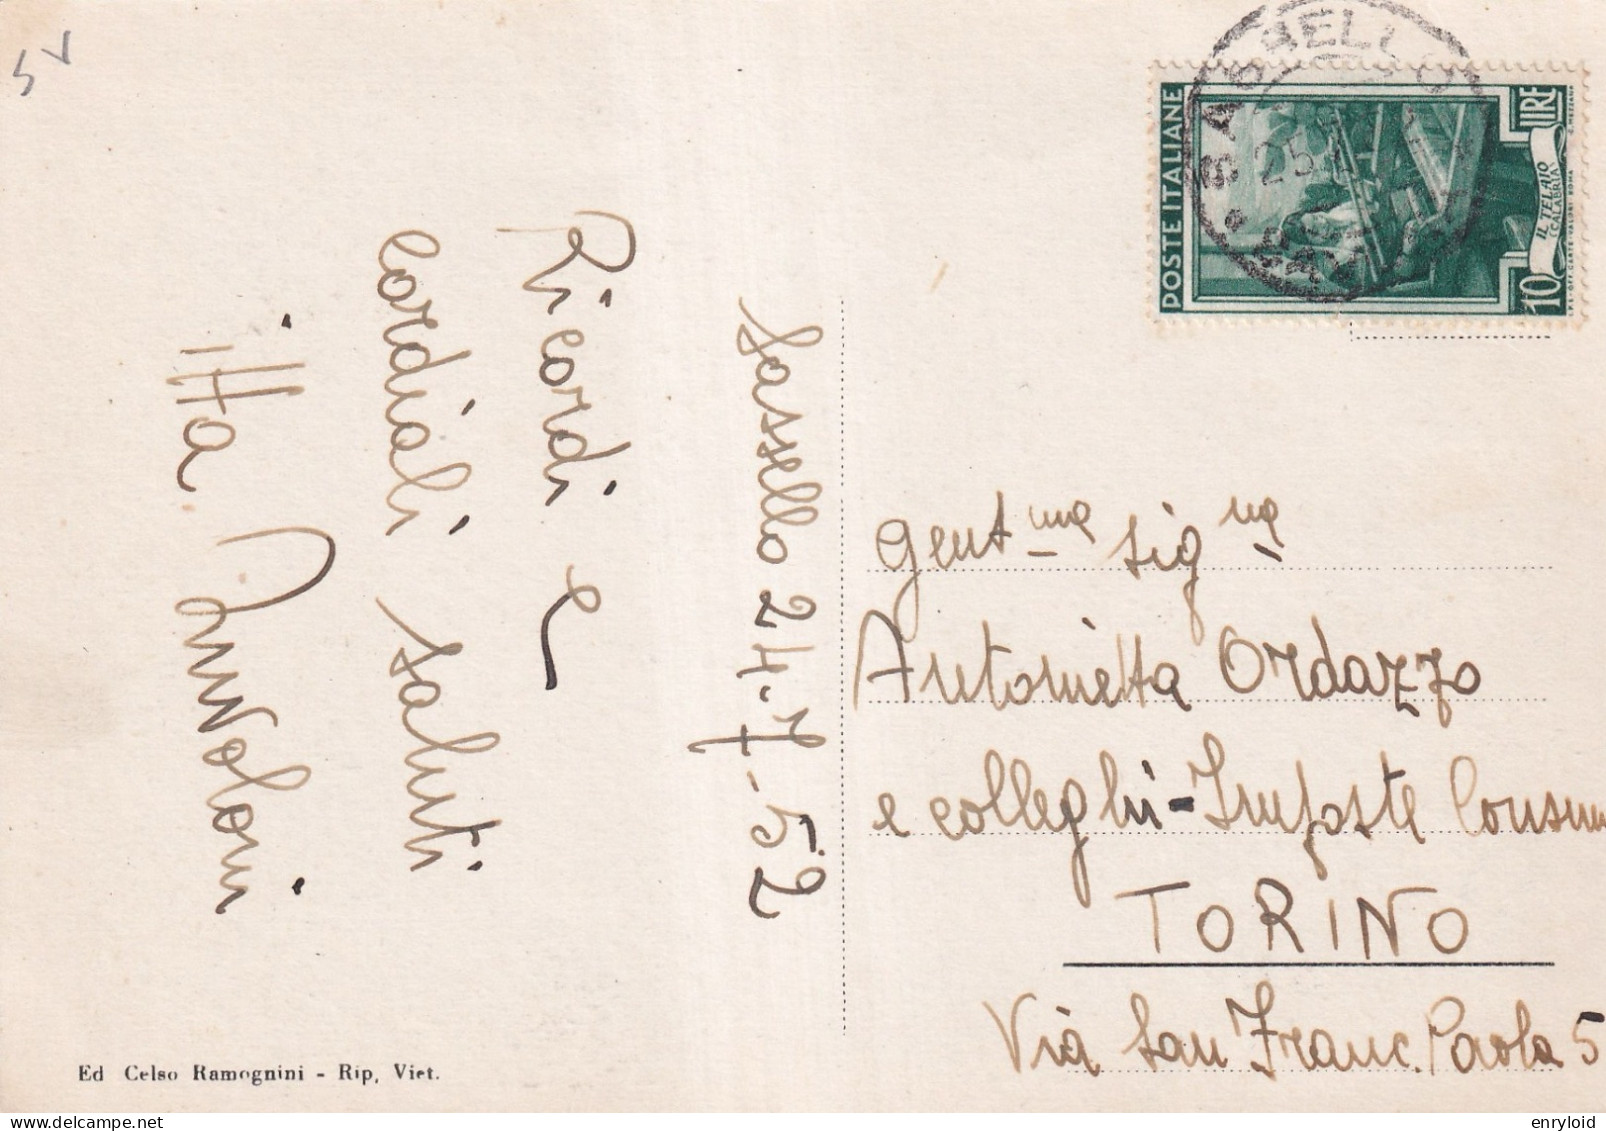 5 V
Sassello 24.7-52
Ricordi e
cordiali saluti
Ed Celso Ramognini - Rip, Viet.
SASSELLO
POSTE ITALIANE
LIRE
10
IL TELAIO
(CALABRIA)
Gent.ma Sig.na
Antonietta Ordazzo
e colleghi - Imposte Consum
TORINO
Via San Franc. Paola 5
enryloid